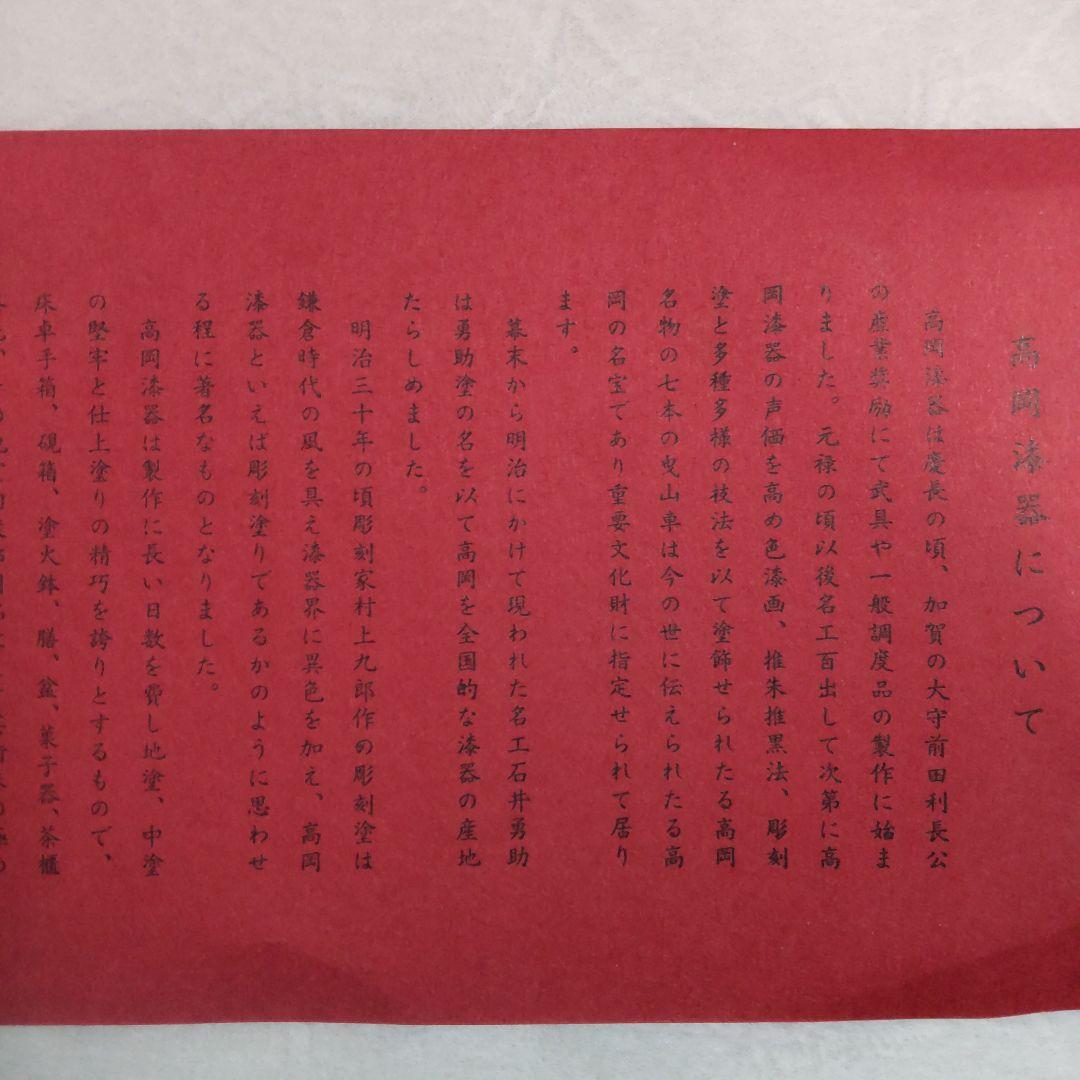 高岡漆器について
高岡漆器は慶長の頃、加賀の大守前田利長公
の産業奨励にて武具や一般調度品の製作に始ま
りました。元禄の頃以後名工百出して次第に高
岡漆器の声価を高め色漆画、推朱推黒法、彫刻
塗と多種多様の技法を以て塗飾せられたる高岡
名物の七本の曳山車は今の世に伝えられたる高
岡の名宝であり重要文化財に指定せられて居り
ます。
幕末から明治にかけて現われた名工石井勇助
は勇助塗の名を以て高岡を全国的な漆器の産地
たらしめました。
明治三十年の頃彫刻家村上九郎作の彫刻塗は
鎌倉時代の風を具え漆器界に異色を加え、高岡
漆器といえば彫刻塗りであるかのように思わせ
る程に著名なものとなりました。
高岡漆器は製作に長い日数を費し地塗、中塗
の堅牢と仕上塗りの精巧を誇りとするもので、
床卓手箱、硯箱、塗火鉢、膳、盆、菓子器、茶櫃